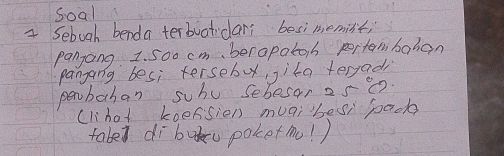 Soal
1 Sebuah benda terbuat dari besi memiliki
panjang 1.500 cm. berapakah pertambahan
pangang besi tersebut, jika terjadi
perubahan suhu sebesar 25°C.
(lihat koefisien muai besi pada
tabel di buku paketmu!)